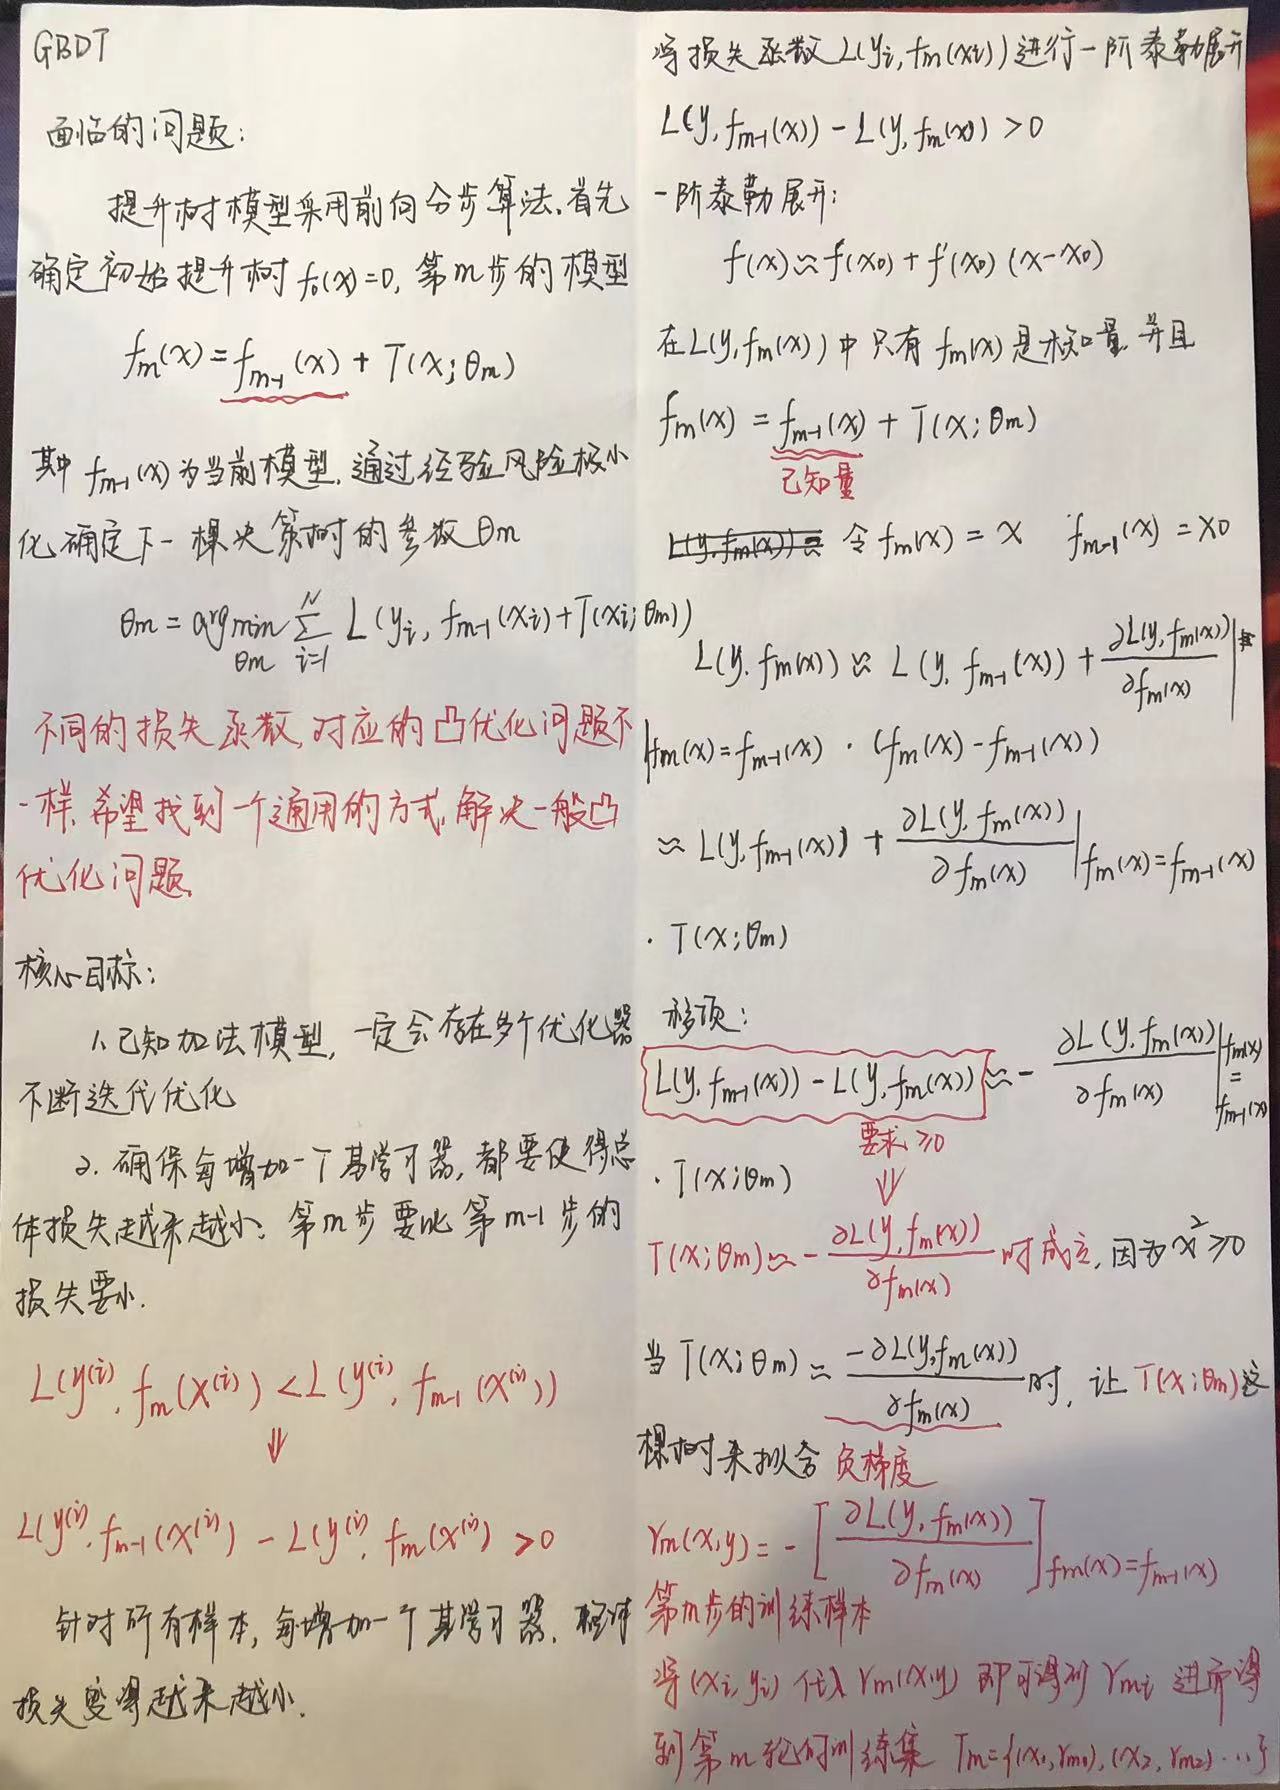 GBDT
面临的问题:
提升树模型采用前向分步算法,首先
确定初始提升树 f₀(x)=0, 第m步的模型
fm(x) = fm-1(x) + T(x; θm)
其中 fm-1(x) 为当前模型, 通过经验风险极小
化确定下一棵决策树的参数 θm
θm = argmin_θm Σ_{i=1}^{N} L(yi, fm-1(xi)+T(xi; θm))
不同的损失函数, 对应的凸优化问题不
一样, 希望找到一个通用的方式, 解决一般凸
优化问题.
核心目标:
1. 已知加法模型, 一定会存在多个优化器
不断迭代优化
2. 确保每增加一个基学习器, 都要使得总
体损失越来越小. 第m步要比第m-1步的
损失要小.
L(y⁽ⁱ⁾, fm(x⁽ⁱ⁾)) < L(y⁽ⁱ⁾, fm-1(x⁽ⁱ⁾))
⇓
L(y⁽ⁱ⁾, fm-1(x⁽ⁱ⁾)) - L(y⁽ⁱ⁾, fm(x⁽ⁱ⁾)) > 0
针对所有样本, 每增加一个基学习器,
损失变得越来越小.
将损失函数 L(yi, fm(xi)) 进行一阶泰勒展开
L(y, fm-1(x)) - L(y, fm(x)) > 0
一阶泰勒展开:
f(x) ≈ f(x0) + f'(x0) (x-x0)
在 L(y, fm(x)) 中只有 fm(x) 是未知量, 并且
fm(x) = fm-1(x) + T(x; θm)
已知量
令 fm(x) = x fm-1(x) = x0
L(y, fm(x)) ≈ L(y, fm-1(x)) + ∂L(y, fm(x))/∂fm(x) |
| fm(x)=fm-1(x) · (fm(x)-fm-1(x))
≈ L(y, fm-1(x)) + ∂L(y, fm(x))/∂fm(x) | fm(x)=fm-1(x)
· T(x; θm)
移项:
L(y, fm-1(x)) - L(y, fm(x)) ≈ - ∂L(y, fm(x))/∂fm(x) | fm(x) = fm-1(x)
要求 ≥0
· T(x; θm) ⇓
T(x; θm) ≈ - ∂L(y, fm(x))/∂fm(x) 时成立, 因为 x² ≥ 0
当 T(x; θm) ≈ -∂L(y, fm(x))/∂fm(x) 时, 让 T(x; θm) 这
棵树来拟合 负梯度
rm(x,y) = - [∂L(y, fm(x))/∂fm(x)] fm(x)=fm-1(x)
第m步的训练样本
将 (xi, yi) 代入 rm(x,y) 即可得到 rmi 进而得
到第m轮的训练集 Tm={(x1, rm1), (x2, rm2) ...}